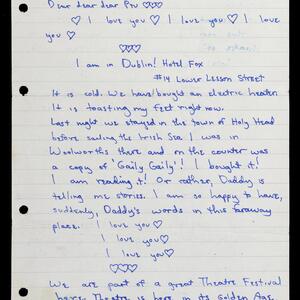 Dear dear dear Pru ♡♡♡
♡ I love you ♡ I love you ♡ I love
you ♡
♡♡♡
I am in Dublin! Hotel Fox
#14 Lower Leeson Street
It is cold. We have bought an electric heater.
It is toasting my feet right now.
Last night we stayed in the town of Holy Head
before sailing the Irish Sea. I was in
Woolworths there and on the counter was
a copy of 'Gaily Gaily'! I bought it!
I am reading it! Or rather, Daddy is
telling me stories. I am so happy to have,
suddenly, Daddy's words in this faraway
place. I love you♡
I love you♡
I love you♡
♡♡♡
We are part of a great Theatre Festival
here. Theatre is here in its Golden Age.